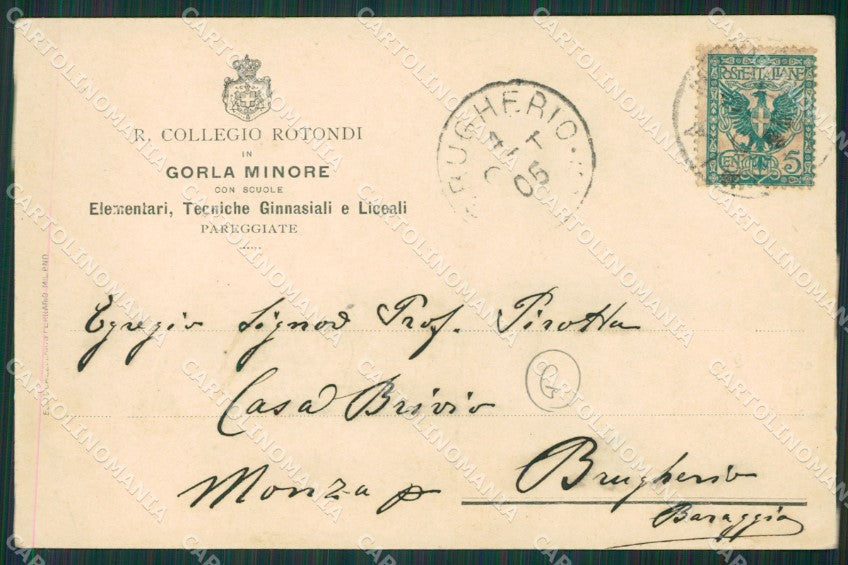 R. COLLEGIO ROTONDI
IN
GORLA MINORE
CON SCUOLE
Elementari, Tecniche Ginnasiali e Liceali
PAREGGIATE
BRUGHERIO
05
POSTE ITALIANE
CENT 5
Egregio Signor Prof. Pirotta
G
Casa Brivio
Monza p Brugherio
Baraggia
CARTOLINOMANIA